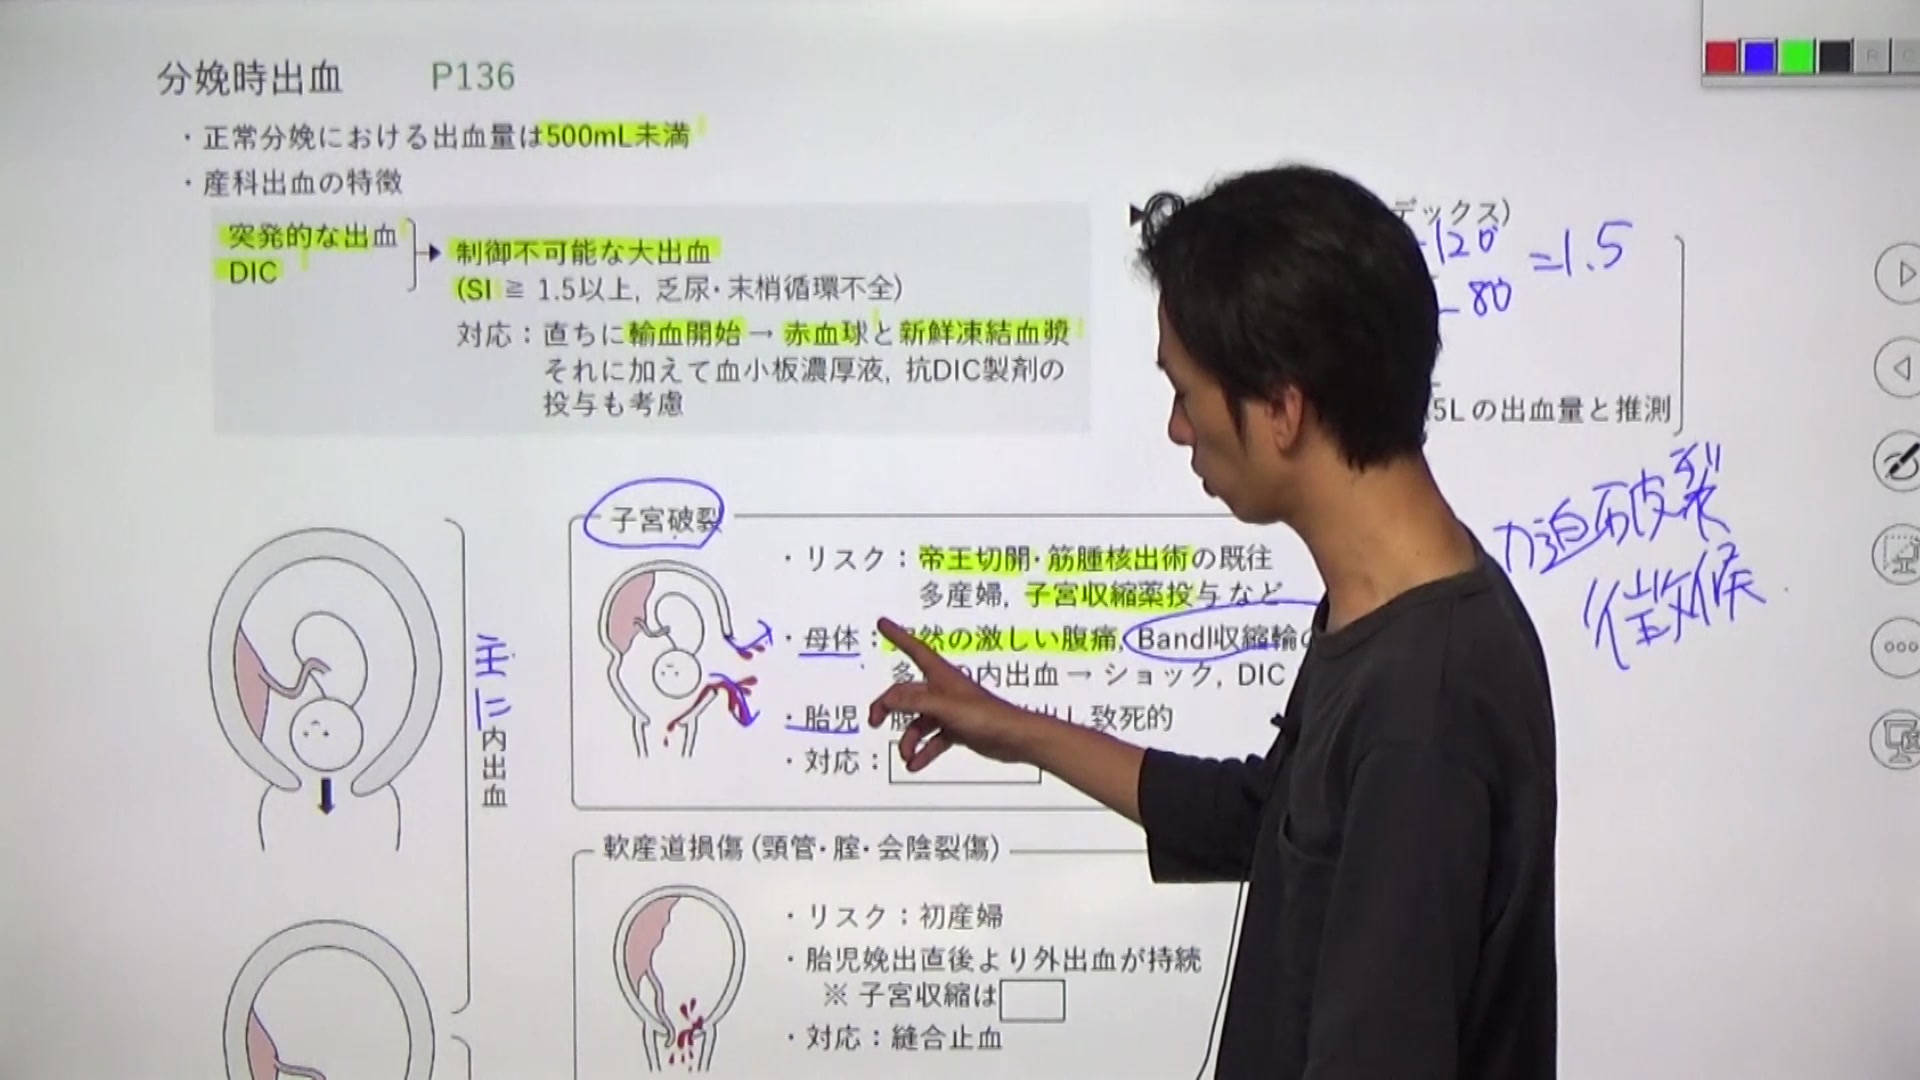 分娩時出血 P136
・正常分娩における出血量は500mL未満
・産科出血の特徴
突発的な出血
DIC
制御不可能な大出血
(SI ≧ 1.5以上, 乏尿・末梢循環不全)
対応：直ちに輸血開始 → 赤血球と新鮮凍結血漿
それに加えて血小板濃厚液, 抗DIC製剤の
投与も考慮
デックス)
120
80
=1.5
5Lの出血量と推測
切迫破裂
徴候
主に
内出血
子宮破裂
・リスク：帝王切開・筋腫核出術の既往
多産婦, 子宮収縮薬投与 など
・母体：突然の激しい腹痛, Bandl収縮輪の
多 の内出血 → ショック, DIC
・胎児 し致死的
・対応：
軟産道損傷 (頸管・腟・会陰裂傷)
・リスク：初産婦
・胎児娩出直後より外出血が持続
※ 子宮収縮は
・対応：縫合止血